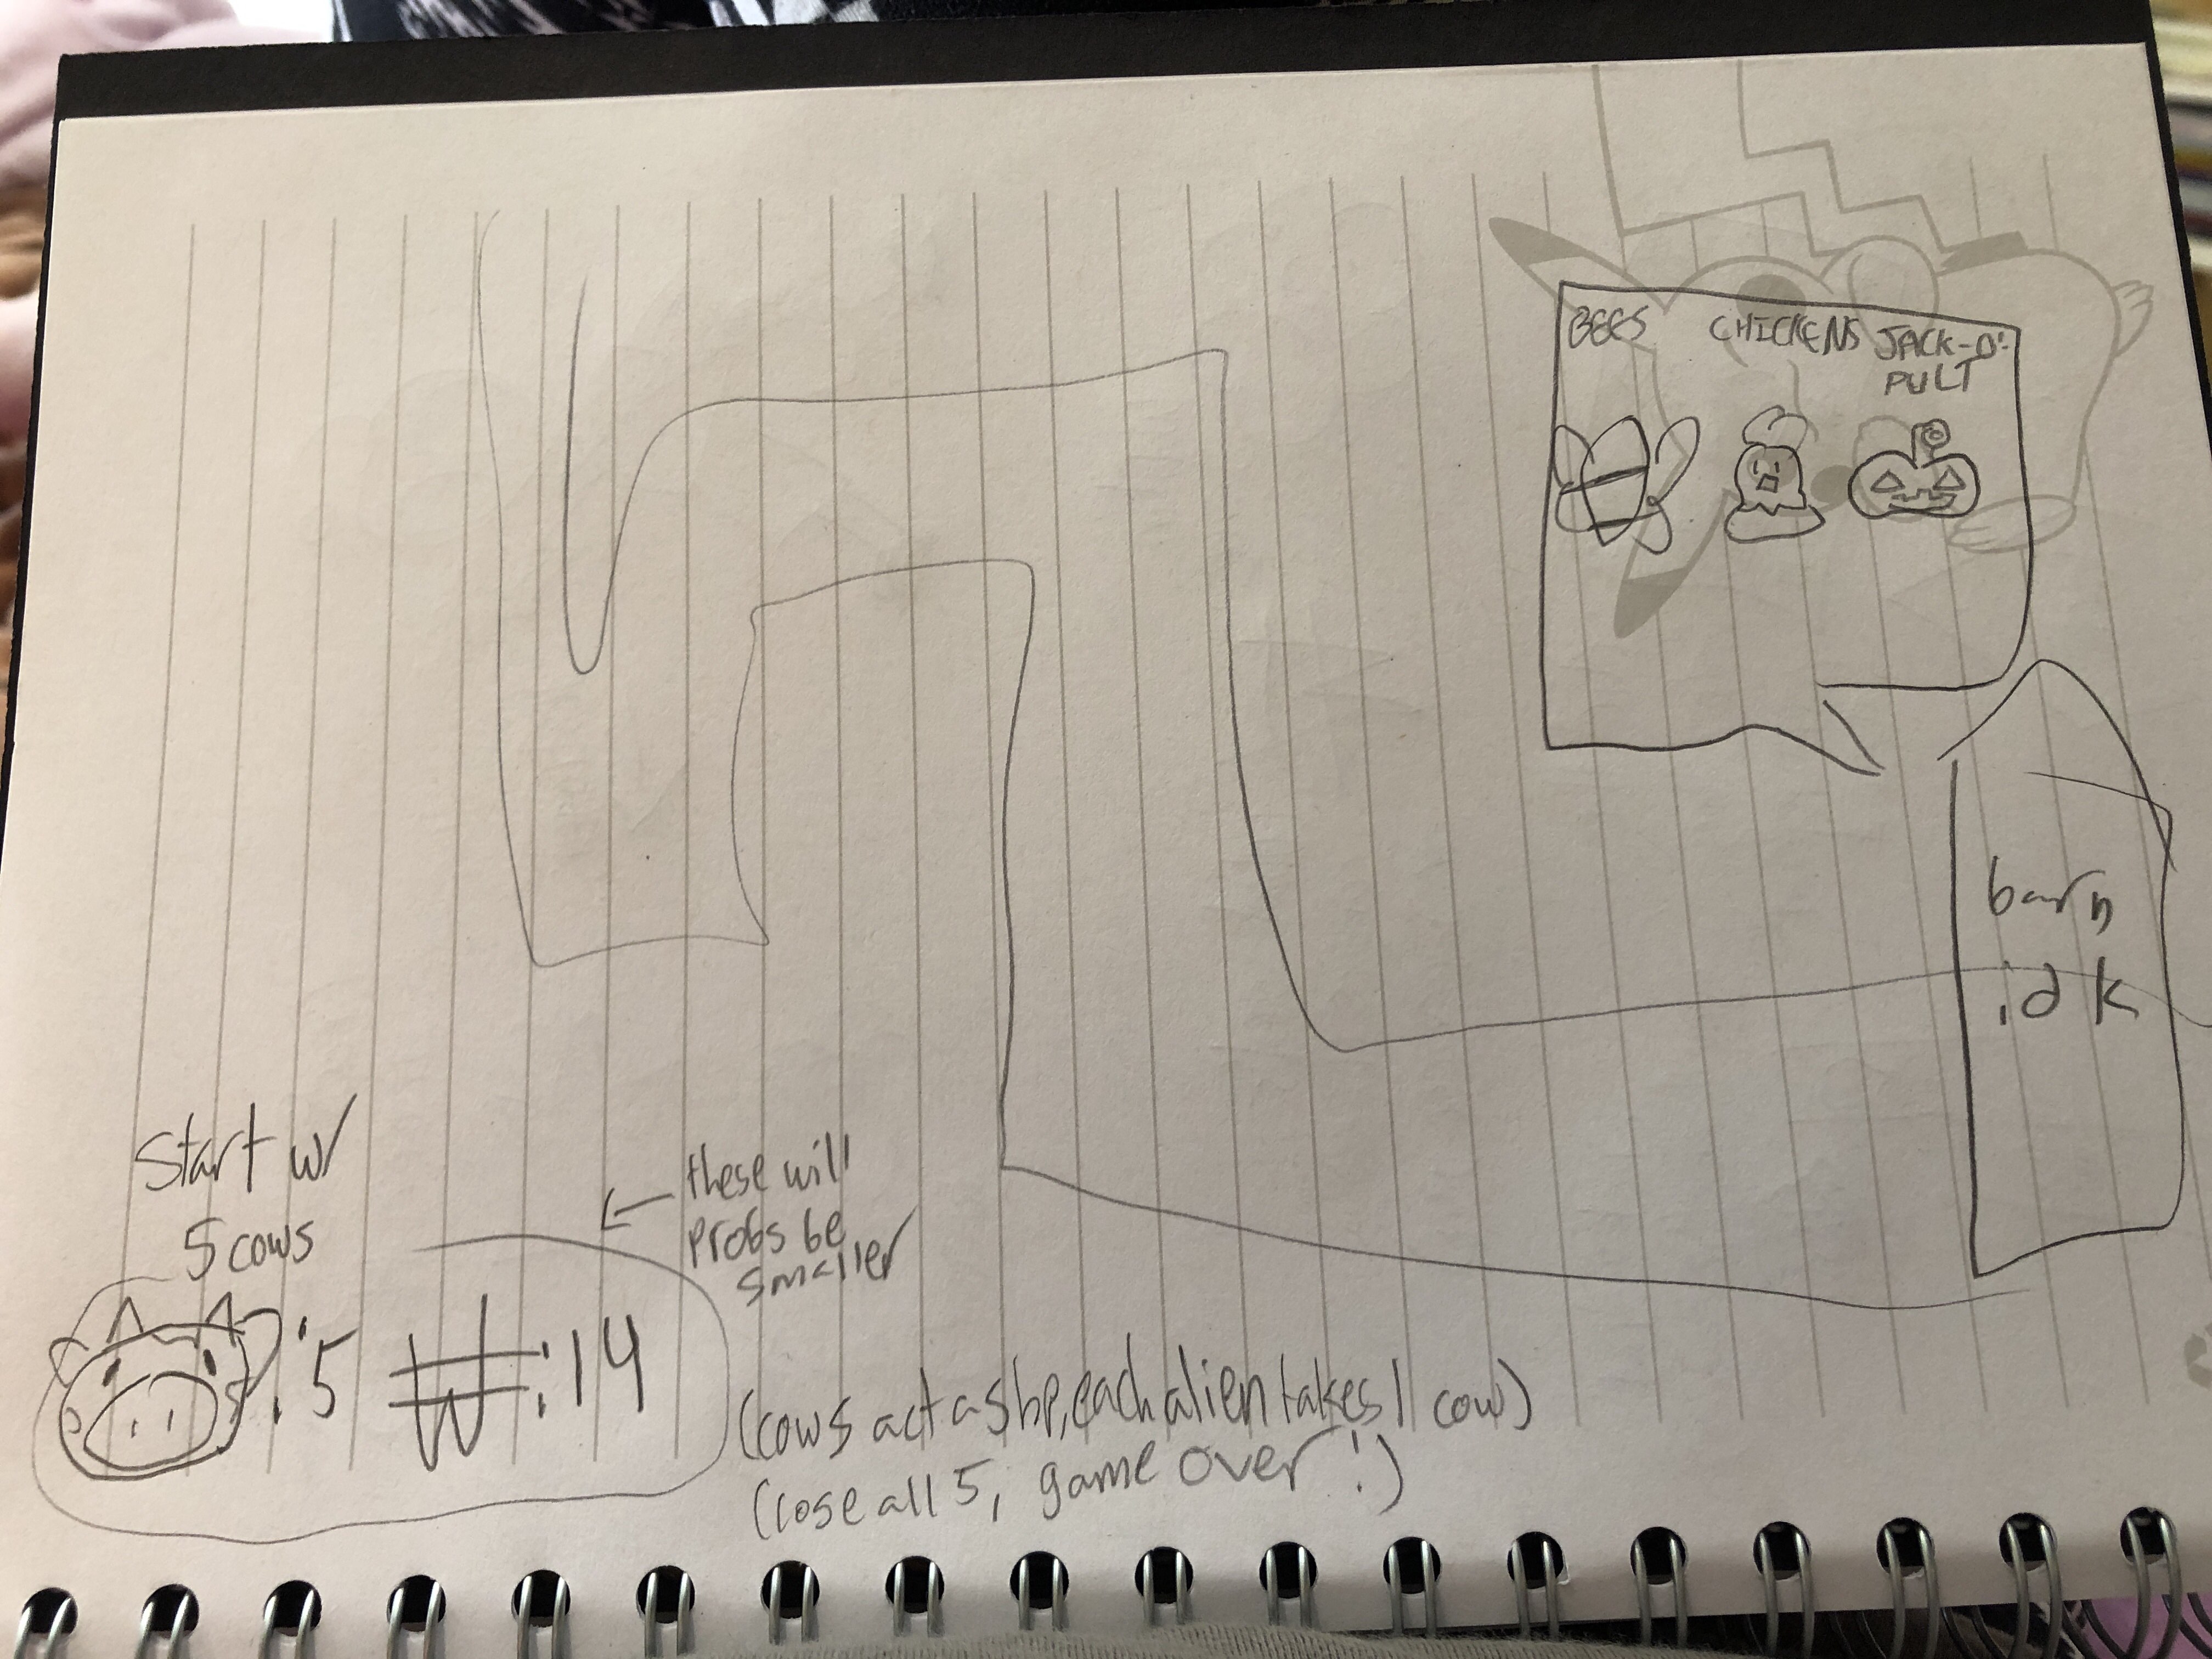 BEES CHICKENS JACK-O'-
PULT
barn
idk
Start w/
5 cows
these will
probs be
smaller
:5 ₩:14
(cows act as hp, each alien takes 1 cow)
(lose all 5, game over!)